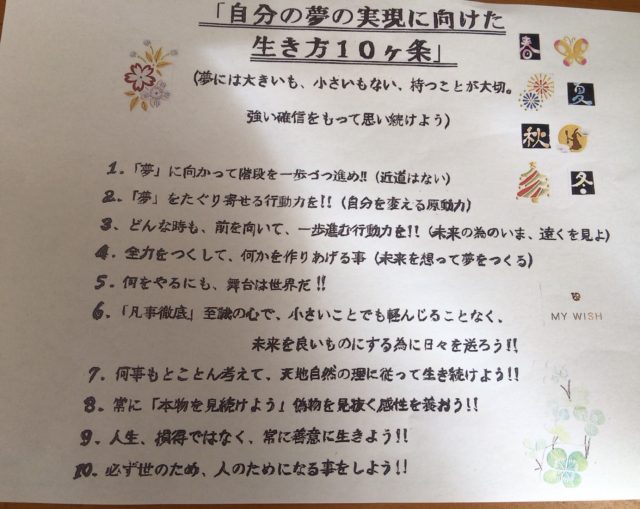 「自分の夢の実現に向けた
生き方10ヶ条」
(夢には大きいも、小さいもない、持つことが大切。
強い確信をもって思い続けよう)
春
夏
秋
冬
1.「夢」に向かって階段を一歩づつ進め!!(近道はない)
2.「夢」をたぐり寄せる行動力を!!(自分を変える原動力)
3. どんな時も、前を向いて、一歩進む行動力を!!(未来の為のいま、遠くを見よ)
4. 全力をつくして、何かを作りあげる事(未来を想って夢をつくる)
5. 何をやるにも、舞台は世界だ!!
6.「凡事徹底」至誠の心で、小さいことでも軽んじることなく、
未来を良いものにする為に日々を送ろう!!
MY WISH
7. 何事もとことん考えて、天地自然の理に従って生き続けよう!!
8. 常に「本物を見続けよう」偽物を見抜く感性を養おう!!
9. 人生、損得ではなく、常に善意に生きよう!!
10. 必ず世のため、人のためになる事をしよう!!